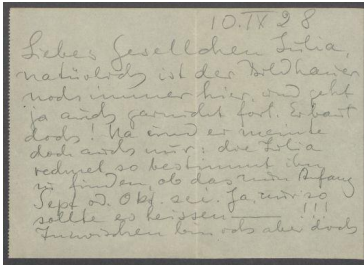 10.IX 28
Liebes Gesellchen Lilia,
natürlich ist der Bildhauer
noch immer hier, und geht
ja auch garnicht fort. Er baut
doch! Na und er meinte
doch auch nur: die Lilia
rechnet so bestimmt ihn
zu finden, ob das nun Anfang
Sept od. Okt. sei. Ja, nur so
sollte es heissen — !!!
Inzwischen bin ich aber doch